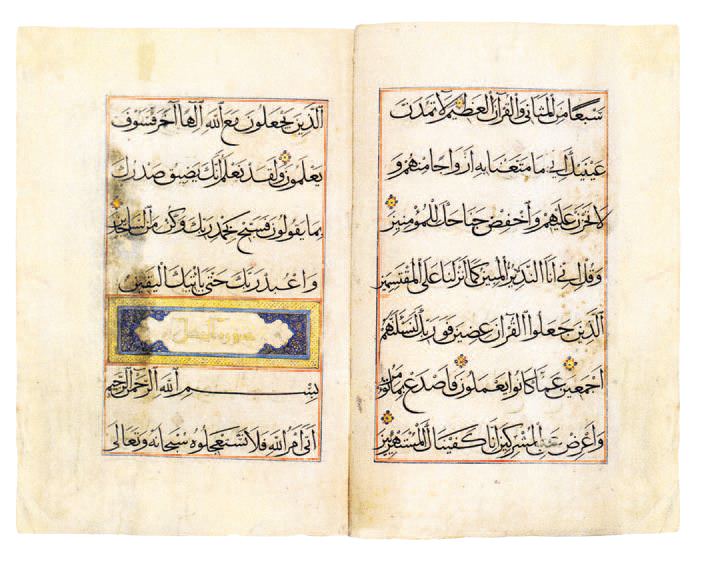 سبعا من المثانى والقران العظيم لا تمدن
عينيك الى ما متعنا به ازواجا منهم و
لا تحزن عليهم واخفض جناحك للمؤمنين
وقل انى انا النذير المبين كما انزلنا على المقتسمين
الذين جعلوا القران عضين فوربك لنسئلنهم
اجمعين عما كانوا يعملون فاصدع بما تؤمر
واعرض عن المشركين انا كفيناك المستهزئين
الذين يجعلون مع الله الها اخر فسوف
يعلمون ولقد نعلم انك يضيق صدرك
بما يقولون فسبح بحمد ربك وكن من الساجدين
واعبد ربك حتى ياتيك اليقين
سورة النحل
بسم الله الرحمن الرحيم
اتى امر الله فلا تستعجلوه سبحانه وتعالى